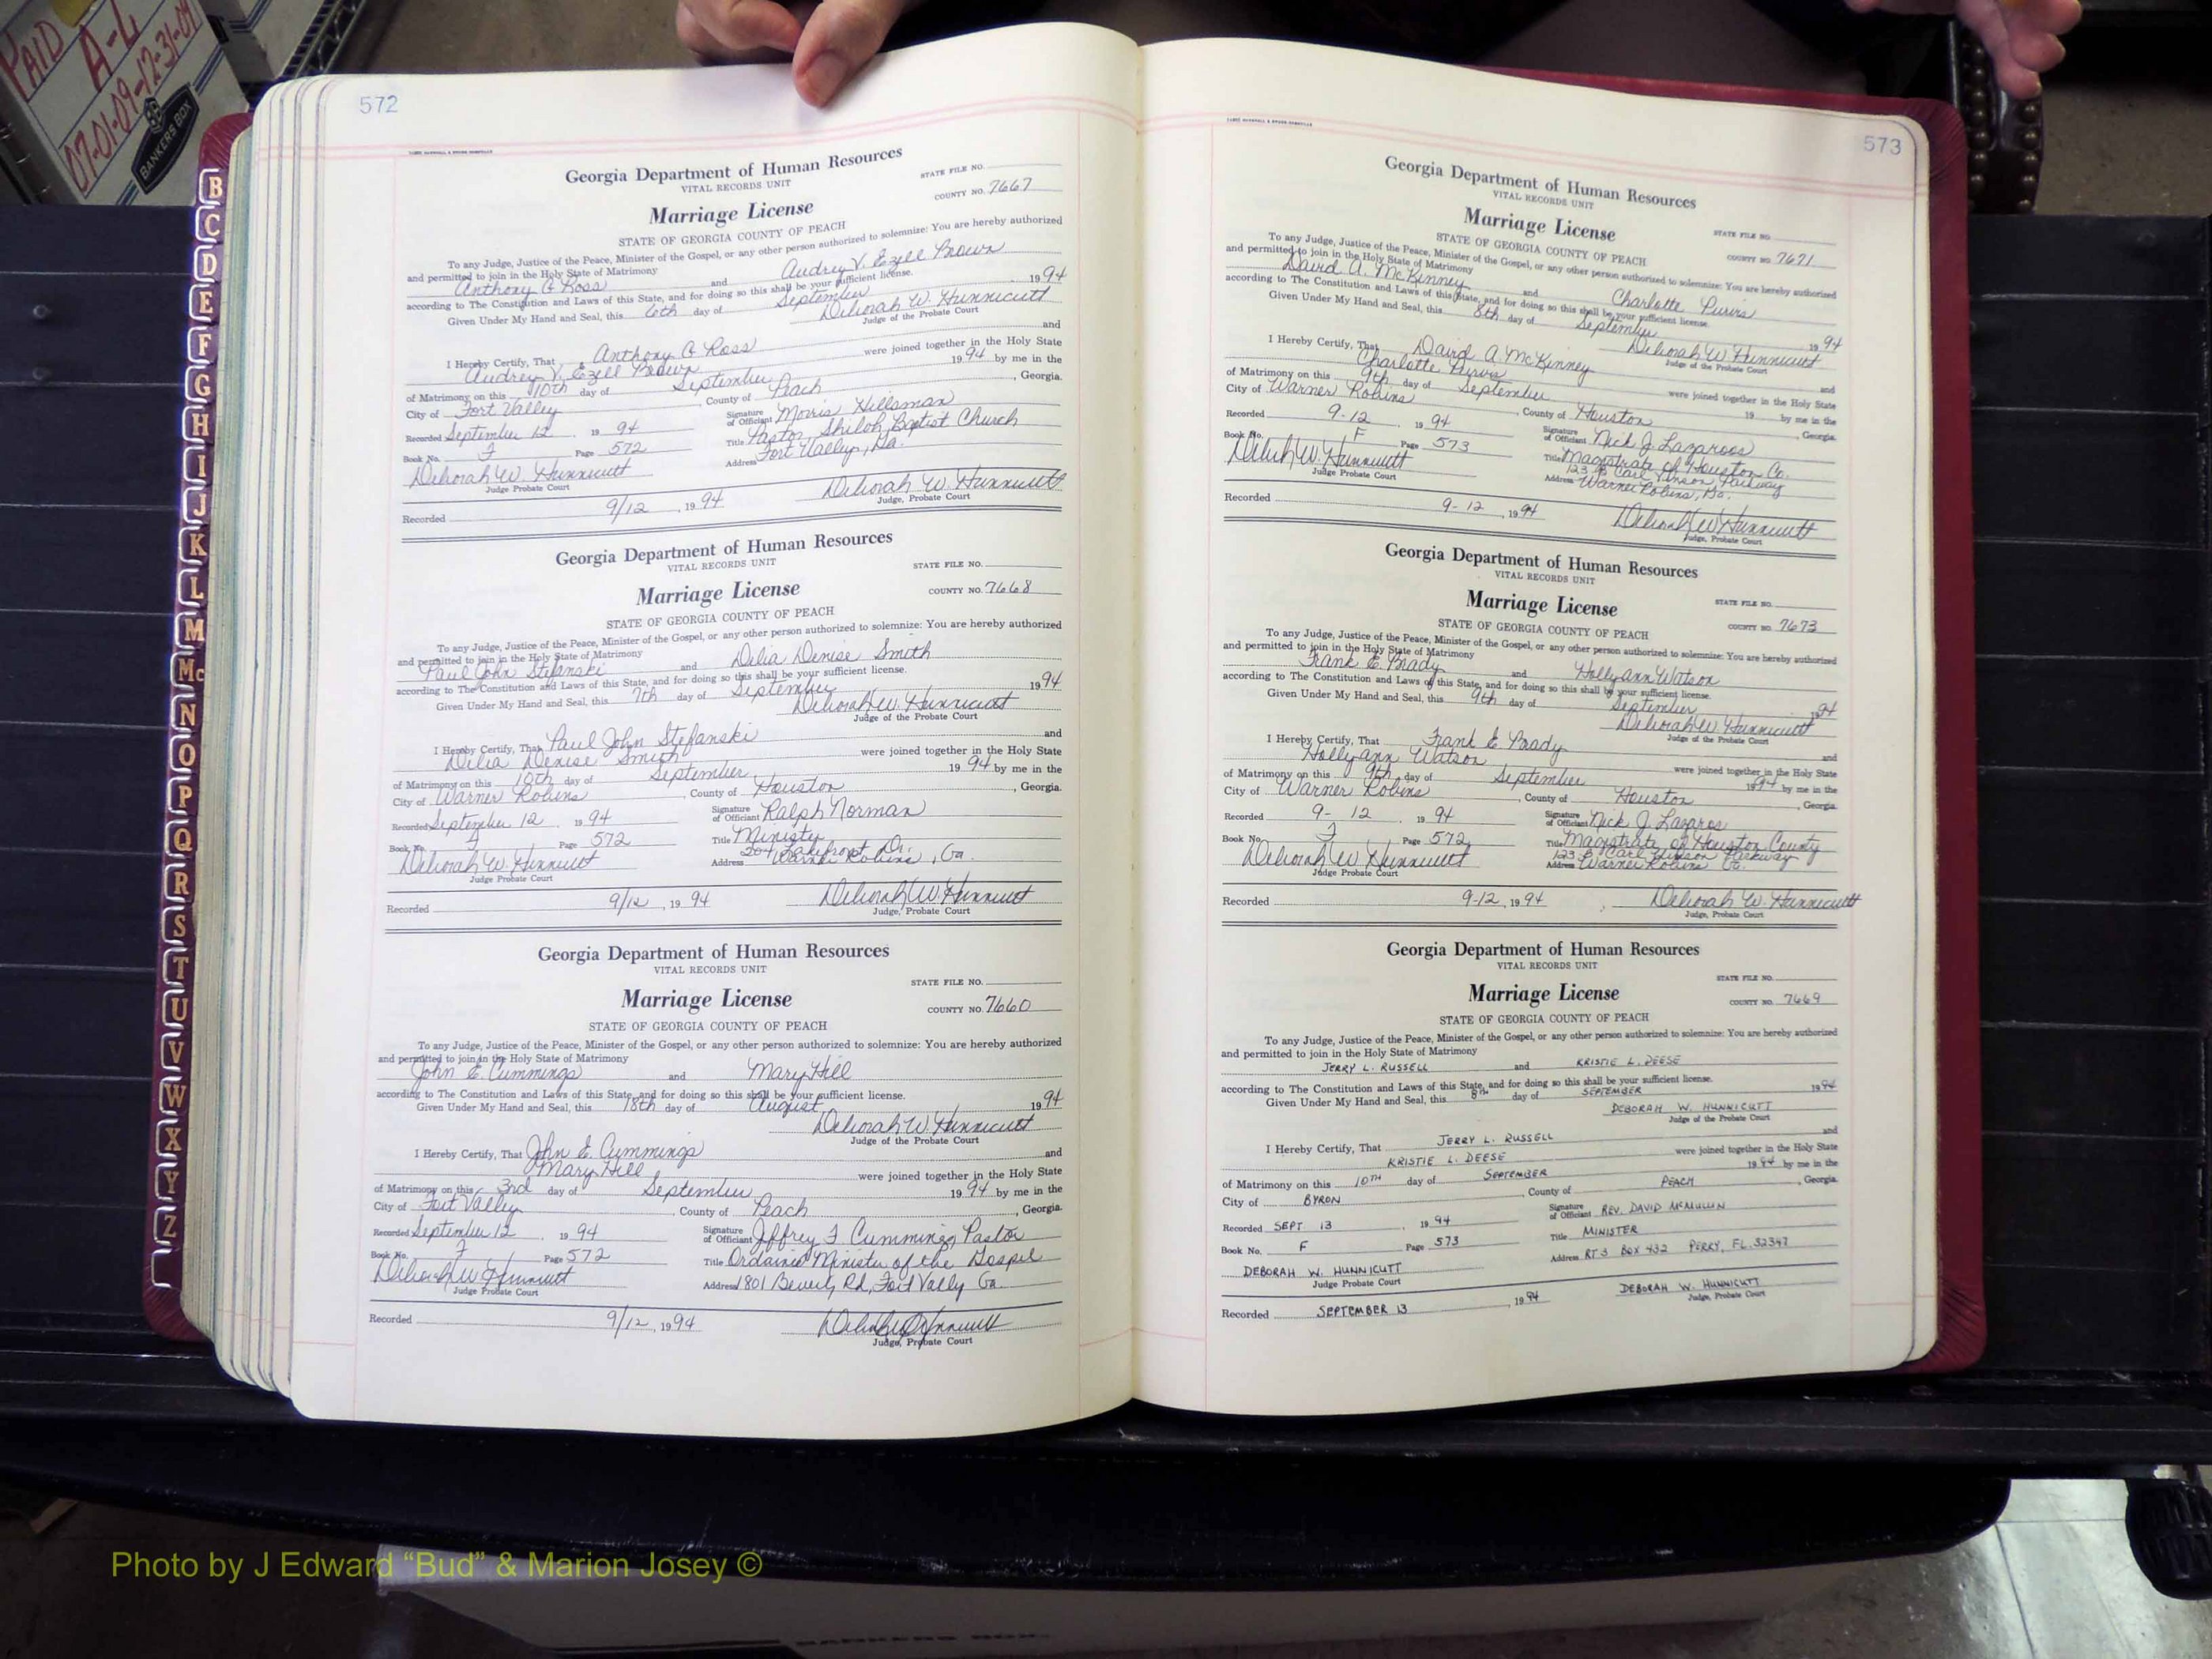 PAID
A-L
07-01-09-12-31-09
BANKERS BOX
B
C
D
E
F
G
H
I
J
K
L
M
Mc
N
O
P
Q
R
S
T
U
V
W
X
Y
Z
572
Georgia Department of Human Resources
VITAL RECORDS UNIT
STATE FILE NO.
COUNTY NO. 7667
Marriage License
STATE OF GEORGIA COUNTY OF PEACH
To any Judge, Justice of the Peace, Minister of the Gospel, or any other person authorized to solemnize: You are hereby authorized
and permitted to join in the Holy State of Matrimony
Anthony G Ross and Audrey V. Ezell Brown
according to The Constitution and Laws of this State, and for doing so this shall be your sufficient license.
Given Under My Hand and Seal, this 6th day of September 1994
Deborah W. Hunnicutt
Judge of the Probate Court
I Hereby Certify, That Anthony G Ross and
Audrey V. Ezell Brown were joined together in the Holy State
of Matrimony on this 10th day of September 1994 by me in the
City of Fort Valley, County of Peach, Georgia.
Recorded September 12, 1994 Signature of Officiant Morris Hillsman
Book No. F Page 572 Title Pastor, Shiloh Baptist Church
Deborah W. Hunnicutt Address Fort Valley, Ga.
Judge Probate Court
Recorded 9/12, 1994 Deborah W. Hunnicutt
Judge, Probate Court
Georgia Department of Human Resources
VITAL RECORDS UNIT
STATE FILE NO.
COUNTY NO. 7668
Marriage License
STATE OF GEORGIA COUNTY OF PEACH
To any Judge, Justice of the Peace, Minister of the Gospel, or any other person authorized to solemnize: You are hereby authorized
and permitted to join in the Holy State of Matrimony
Paul John Stefanski and Delia Denise Smith
according to The Constitution and Laws of this State, and for doing so this shall be your sufficient license.
Given Under My Hand and Seal, this 7th day of September 1994
Deborah W. Hunnicutt
Judge of the Probate Court
I Hereby Certify, That Paul John Stefanski and
Delia Denise Smith were joined together in the Holy State
of Matrimony on this 10th day of September 1994 by me in the
City of Warner Robins, County of Houston, Georgia.
Recorded September 12, 1994 Signature of Officiant Ralph Norman
Book No. F Page 572 Title Minister
Deborah W. Hunnicutt Address 204 Lakefront Dr. Warner Robins, Ga.
Judge Probate Court
Recorded 9/12, 1994 Deborah W. Hunnicutt
Judge, Probate Court
Georgia Department of Human Resources
VITAL RECORDS UNIT
STATE FILE NO.
COUNTY NO. 7660
Marriage License
STATE OF GEORGIA COUNTY OF PEACH
To any Judge, Justice of the Peace, Minister of the Gospel, or any other person authorized to solemnize: You are hereby authorized
and permitted to join in the Holy State of Matrimony
John E. Cummings and Mary Hill
according to The Constitution and Laws of this State, and for doing so this shall be your sufficient license.
Given Under My Hand and Seal, this 18th day of August, 1994
Deborah W. Hunnicutt
Judge of the Probate Court
I Hereby Certify, That John E. Cummings and
Mary Hill were joined together in the Holy State
of Matrimony on this 3rd day of September 1994 by me in the
City of Fort Valley, County of Peach, Georgia.
Recorded September 12, 1994 Signature of Officiant Jeffrey F Cummings, Pastor
Book No. F Page 572 Title Ordained Minister of the Gospel
Deborah W Hunnicutt Address 1801 Beverly Rd, Fort Valley Ga.
Judge Probate Court
Recorded 9/12, 1994 Deborah W Hunnicutt
Judge, Probate Court
573
Georgia Department of Human Resources
VITAL RECORDS UNIT
Marriage License
STATE FILE NO.
STATE OF GEORGIA COUNTY OF PEACH
COUNTY NO. 7671
To any Judge, Justice of the Peace, Minister of the Gospel, or any other person authorized to solemnize: You are hereby authorized
and permitted to join in the Holy State of Matrimony
David A. McKinney and Charlotte Purvis
according to The Constitution and Laws of this State, and for doing so this shall be your sufficient license.
Given Under My Hand and Seal, this 8th day of September 1994
Deborah W Hunnicutt
Judge of the Probate Court
I Hereby Certify, That David A. McKinney and
Charlotte Purvis were joined together in the Holy State
of Matrimony on this 9th day of September 19 by me in the
City of Warner Robins, County of Houston, Georgia.
Recorded 9-12, 1994 Signature of Officiant Nick J. Lazaros
Book No. F Page 573 Title Magistrate of Houston Co.
Deborah W. Hunnicutt Address 123 B Carl Vinson Parkway Warner Robins, Ga.
Judge Probate Court
Recorded 9-12, 1994 Deborah W Hunnicutt
Judge, Probate Court
Georgia Department of Human Resources
VITAL RECORDS UNIT
Marriage License
STATE FILE NO.
STATE OF GEORGIA COUNTY OF PEACH
COUNTY NO. 7673
To any Judge, Justice of the Peace, Minister of the Gospel, or any other person authorized to solemnize: You are hereby authorized
and permitted to join in the Holy State of Matrimony
Frank E. Brady and Holly Ann Watson
according to The Constitution and Laws of this State, and for doing so this shall be your sufficient license.
Given Under My Hand and Seal, this 9th day of September, 1994
Deborah W. Hunnicutt
Judge of the Probate Court
I Hereby Certify, That Frank E. Brady and
Holly Ann Watson were joined together in the Holy State
of Matrimony on this 9th day of September 1994 by me in the
City of Warner Robins, County of Houston, Georgia.
Recorded 9-12, 1994 Signature of Officiant Nick J. Lazaros
Book No. F Page 572 Title Magistrate of Houston County
Deborah W Hunnicutt Address 123 B Carl Vinson Parkway Warner Robins Ga.
Judge Probate Court
Recorded 9-12, 1994 Deborah W. Hunnicutt
Judge, Probate Court
Georgia Department of Human Resources
VITAL RECORDS UNIT
STATE FILE NO.
Marriage License
COUNTY NO. 7669
STATE OF GEORGIA COUNTY OF PEACH
To any Judge, Justice of the Peace, Minister of the Gospel, or any other person authorized to solemnize: You are hereby authorized
and permitted to join in the Holy State of Matrimony
JERRY L. RUSSELL and KRISTIE L. DEESE
according to The Constitution and Laws of this State, and for doing so this shall be your sufficient license.
Given Under My Hand and Seal, this 8th day of SEPTEMBER 1994
DEBORAH W. HUNNICUTT
Judge of the Probate Court
I Hereby Certify, That JERRY L. RUSSELL and
KRISTIE L. DEESE were joined together in the Holy State
of Matrimony on this 10TH day of SEPTEMBER 1994 by me in the
City of BYRON, County of PEACH, Georgia.
Recorded SEPT 13, 1994 Signature of Officiant REV. DAVID McMULLIN
Book No. F Page 573 Title MINISTER
DEBORAH W. HUNNICUTT Address RT 3 BOX 432 PERRY, FL. 32347
Judge Probate Court
Recorded SEPTEMBER 13, 1994 DEBORAH W. HUNNICUTT
Judge, Probate Court
Photo by J Edward “Bud” & Marion Josey ©